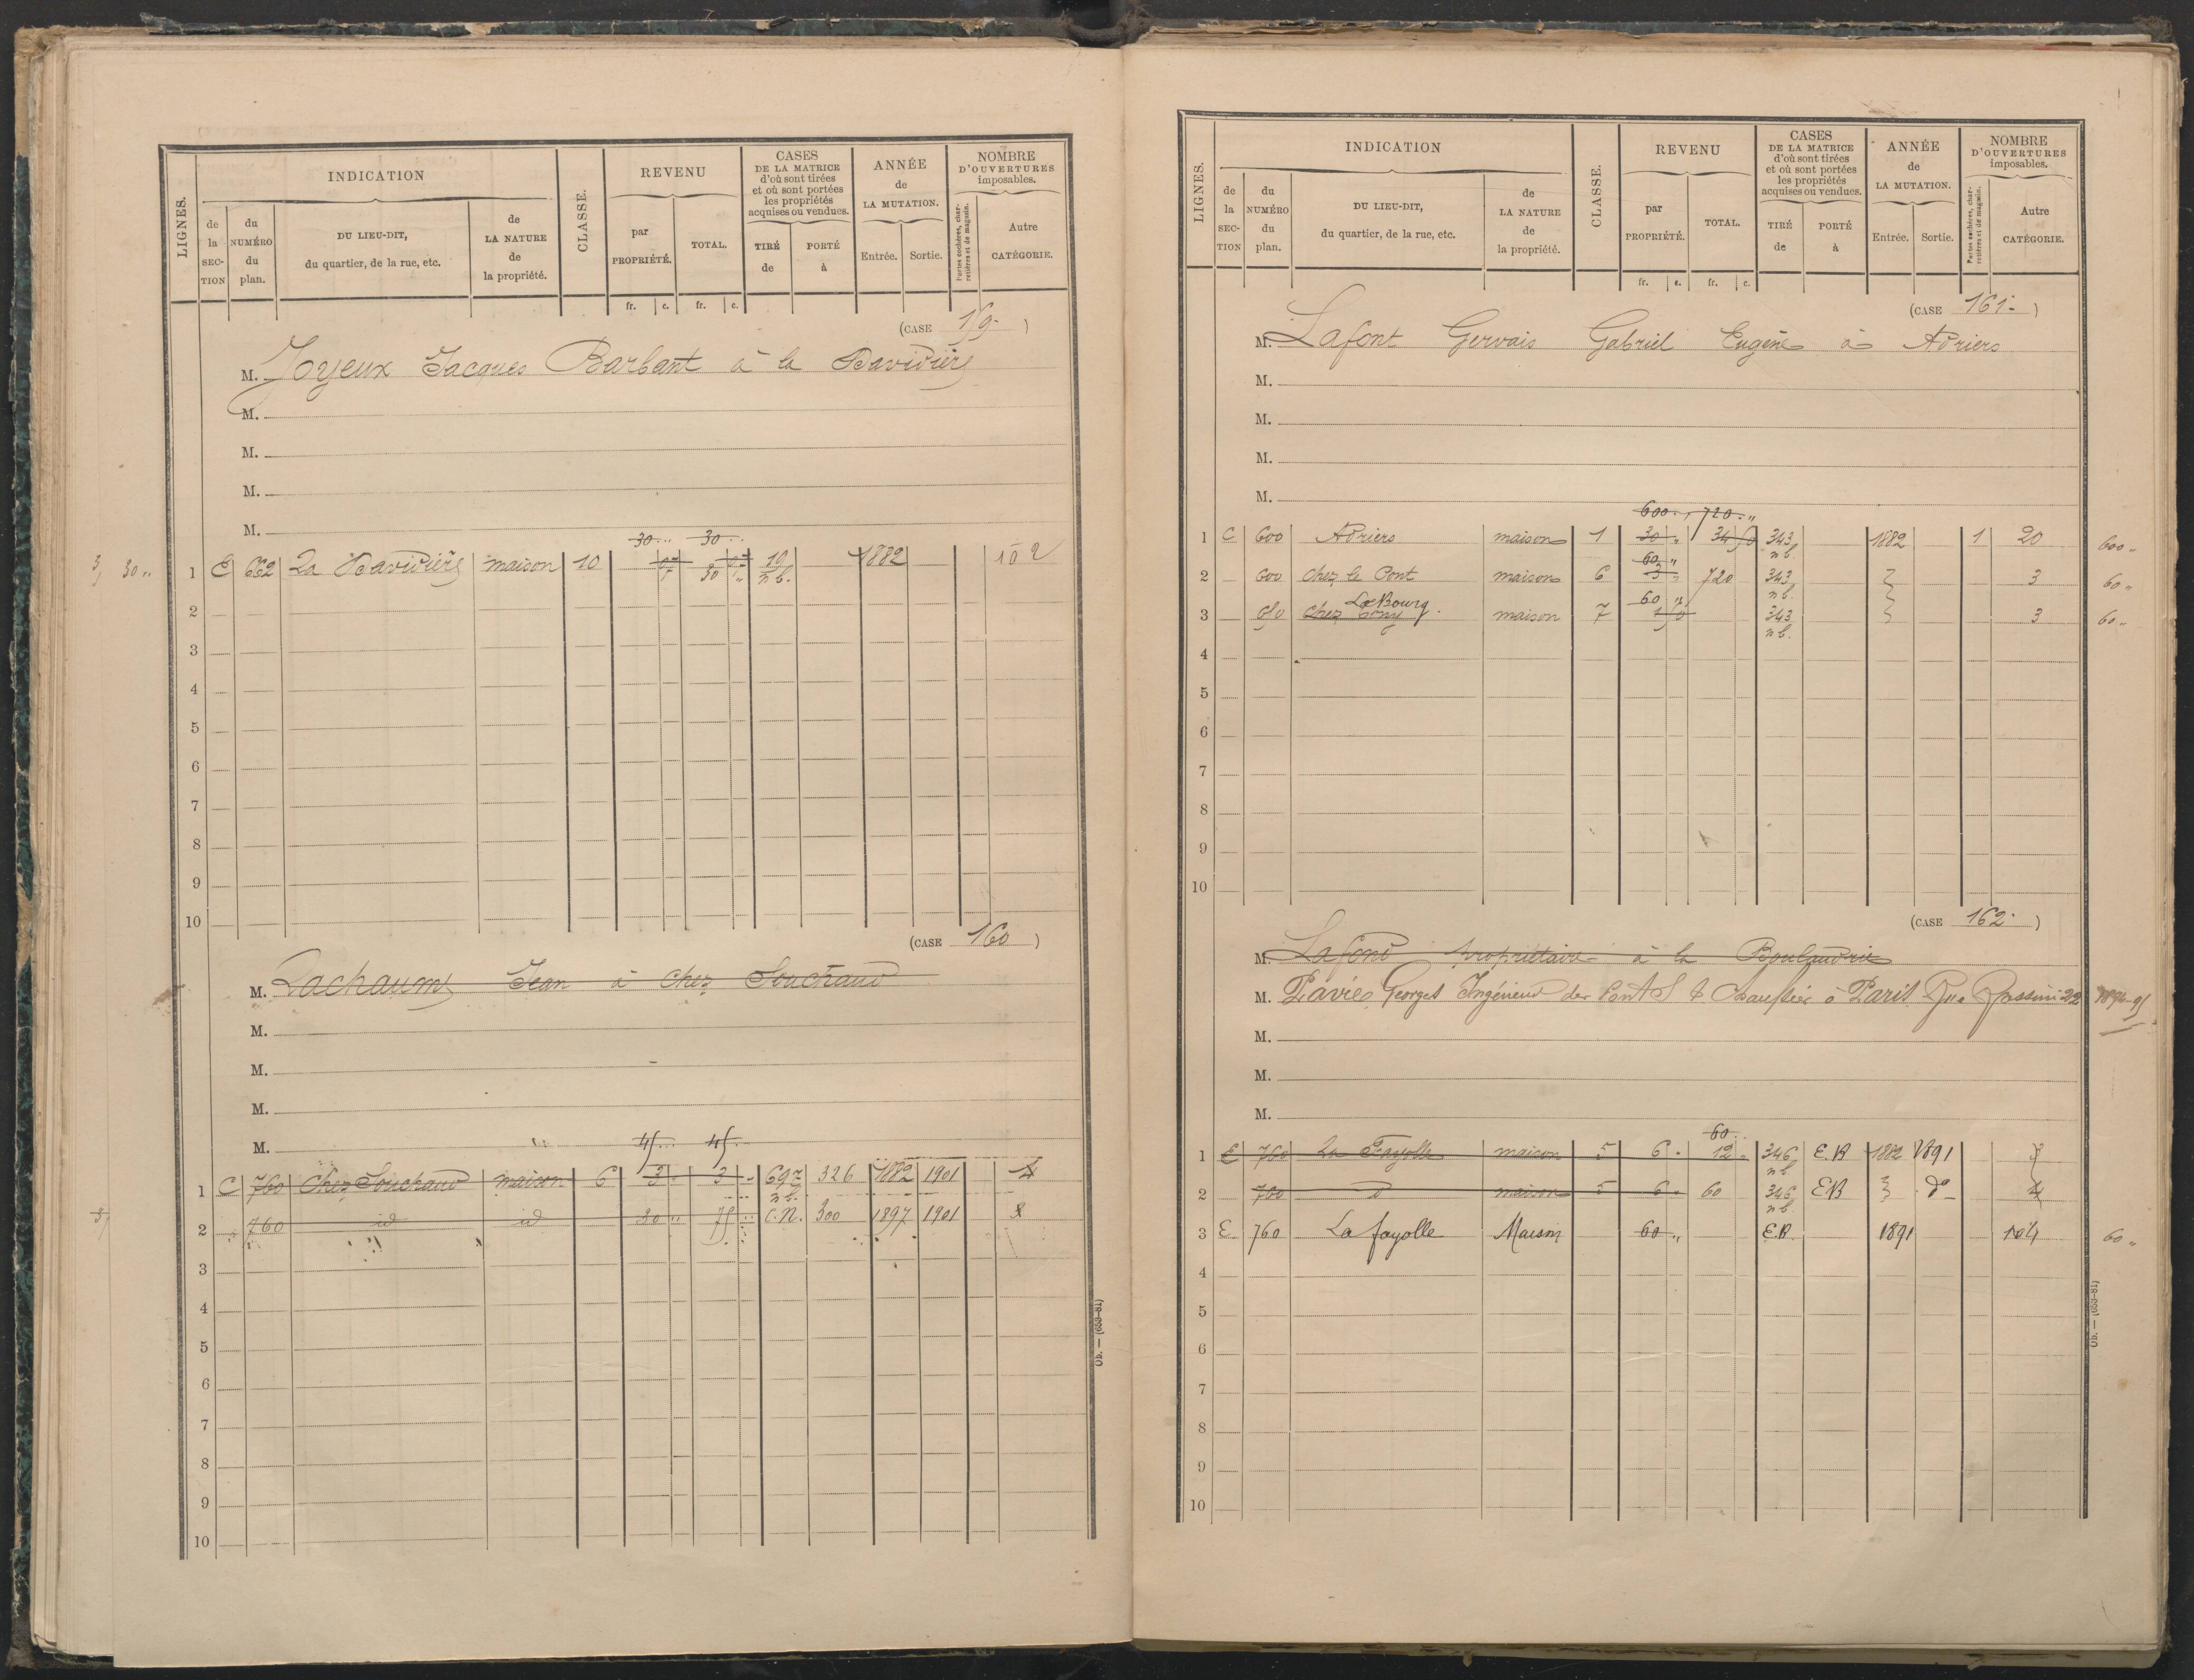 LIGNES.
INDICATION
de la SECTION
du NUMÉRO du plan.
DU LIEU-DIT, du quartier, de la rue, etc.
de LA NATURE de la propriété.
CLASSE.
REVENU
par PROPRIÉTÉ.
TOTAL.
fr. c. fr. c.
CASES DE LA MATRICE d'où sont tirées et où sont portées les propriétés acquises ou vendues.
TIRÉ de
PORTÉ à
ANNÉE de LA MUTATION.
Entrée. Sortie.
NOMBRE D'OUVERTURES imposables.
Portes cochères, charretières et de magasin.
Autre CATÉGORIE.
(CASE 159 )
M. Joyeux Jacques Barbant à la Davidière
M.
M.
M.
M.
30 30
3 30 1 E 662 La Davidière maison 10 30 10 n b. 1882 2
2
3
4
5
6
7
8
9
10
(CASE 160 )
M. Lachaume Jean à Chez Souchaud
M.
M.
M.
M.
45 45
1 C 760 Chez Souchaud maison 6 3 3 697 n b. 326 1882 1901 4
2 760 id id 30 75 C.N. 300 1897 1901
3
4
5
6
7
8
9
10
Ob. — (653-81)
LIGNES.
INDICATION
de la SECTION
du NUMÉRO du plan.
DU LIEU-DIT, du quartier, de la rue, etc.
de LA NATURE de la propriété.
CLASSE.
REVENU
par PROPRIÉTÉ.
TOTAL.
fr. c. fr. c.
CASES DE LA MATRICE d'où sont tirées et où sont portées les propriétés acquises ou vendues.
TIRÉ de
PORTÉ à
ANNÉE de LA MUTATION.
Entrée. Sortie.
NOMBRE D'OUVERTURES imposables.
Portes cochères, charretières et de magasin.
Autre CATÉGORIE.
(CASE 161 )
M. Lafont Gervais Gabriel Eugène à Adriers
M.
M.
M.
M.
600 720
1 C 600 Adriers maison 1 30 34 50 343 n b. 1882 1 20 600
60
2 600 Chez le Pont maison 6 3 720 343 n b. 3 60
60 Le Bourg
3 chez maison 7 1 50 343 n b. 3 60
4
5
6
7
8
9
10
(CASE 162 )
M. Lafond propriétaire à la Boulaudrie
M. Pavie Georges Ingénieur des Ponts & Chaussées à Paris Rue Cassini 22
M.
M.
M.
60
1 E 760 La Fayolle maison 5 6 12 346 n b. E.B 1882 1891
2 760 d maison 5 6 60 346 n b. EB do 4
3 E 760 La fayolle Maison 60 E.B. 1891 60
4
5
6
7
8
9
10
Ob. — (653-81)